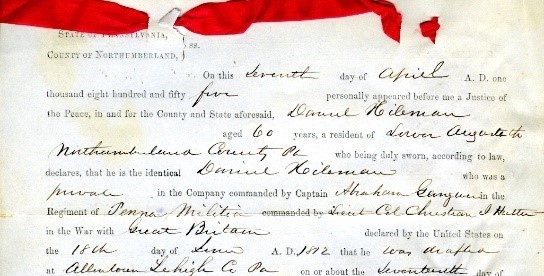 STATE OF PENNSYLVANIA,
COUNTY OF NORTHUMBERLAND, } ss.
On this Seventh day of April A. D. one
thousand eight hundred and fifty five personally appeared before me a Justice of
the Peace, in and for the County and State aforesaid, Daniel Hileman
aged 60 years, a resident of Lower Augusta Tp
Northumberland County Pa who being duly sworn, according to law,
declares, that he is the identical Daniel Hileman who was a
private in the Company commanded by Captain Abraham in the
Regiment of Penna Militia commanded by Lieut Col Christian J Hutter
in the War with Great Britain declared by the United States on
the 18th day of June A. D. 1812 that he was drafted
at Allentown Lehigh Co Pa on or about the Seventeenth day of